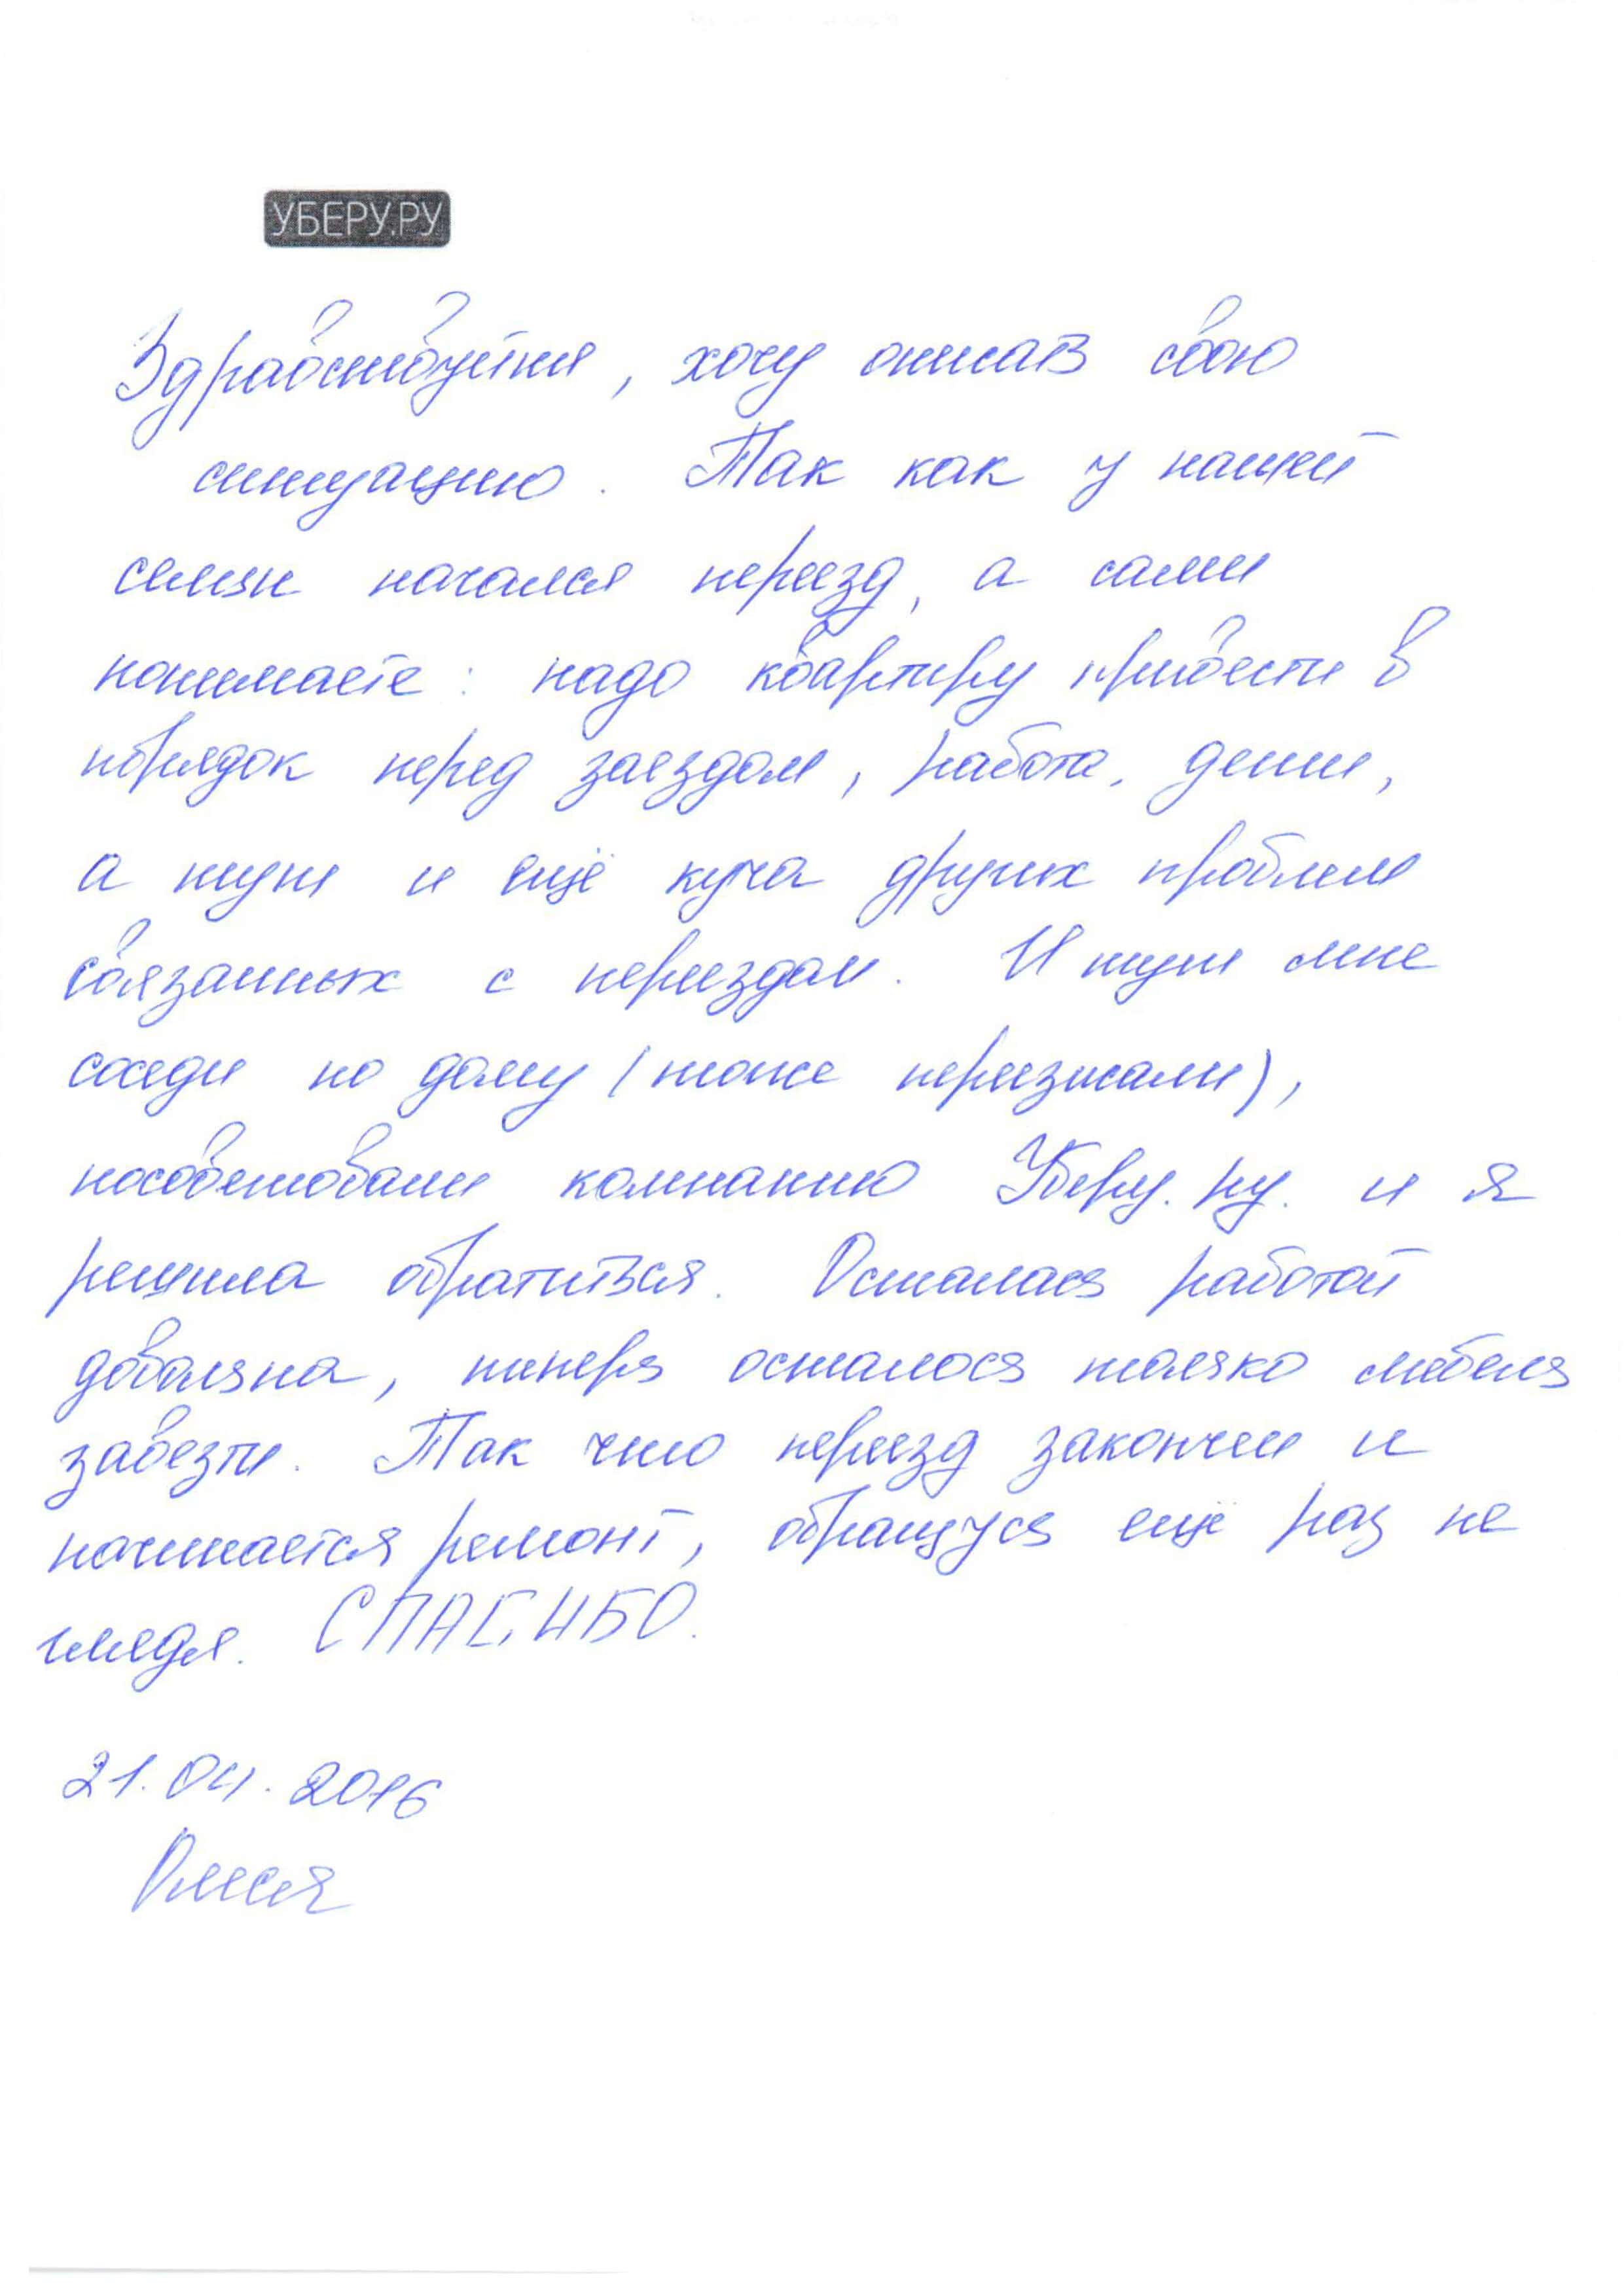 УБЕРУ.РУ
Здравствуйте, хочу описать свою
ситуацию. Так как у нашей
семьи начался переезд, а сами
понимаете: надо квартиру привести в
порядок перед заездом, работа, дети,
а тут и ещё куча других проблем
связанных с переездом. И тут мне
соседи по дому (тоже переезжали),
посоветовали компанию Уберу.ру. и я
решила обратиться. Осталась работой
довольна, теперь осталось только мебель
завезти. Так что переезд закончен и
начинается ремонт, обращусь ещё раз не
глядя. СПАСИБО.
21.04.2016
Олеся